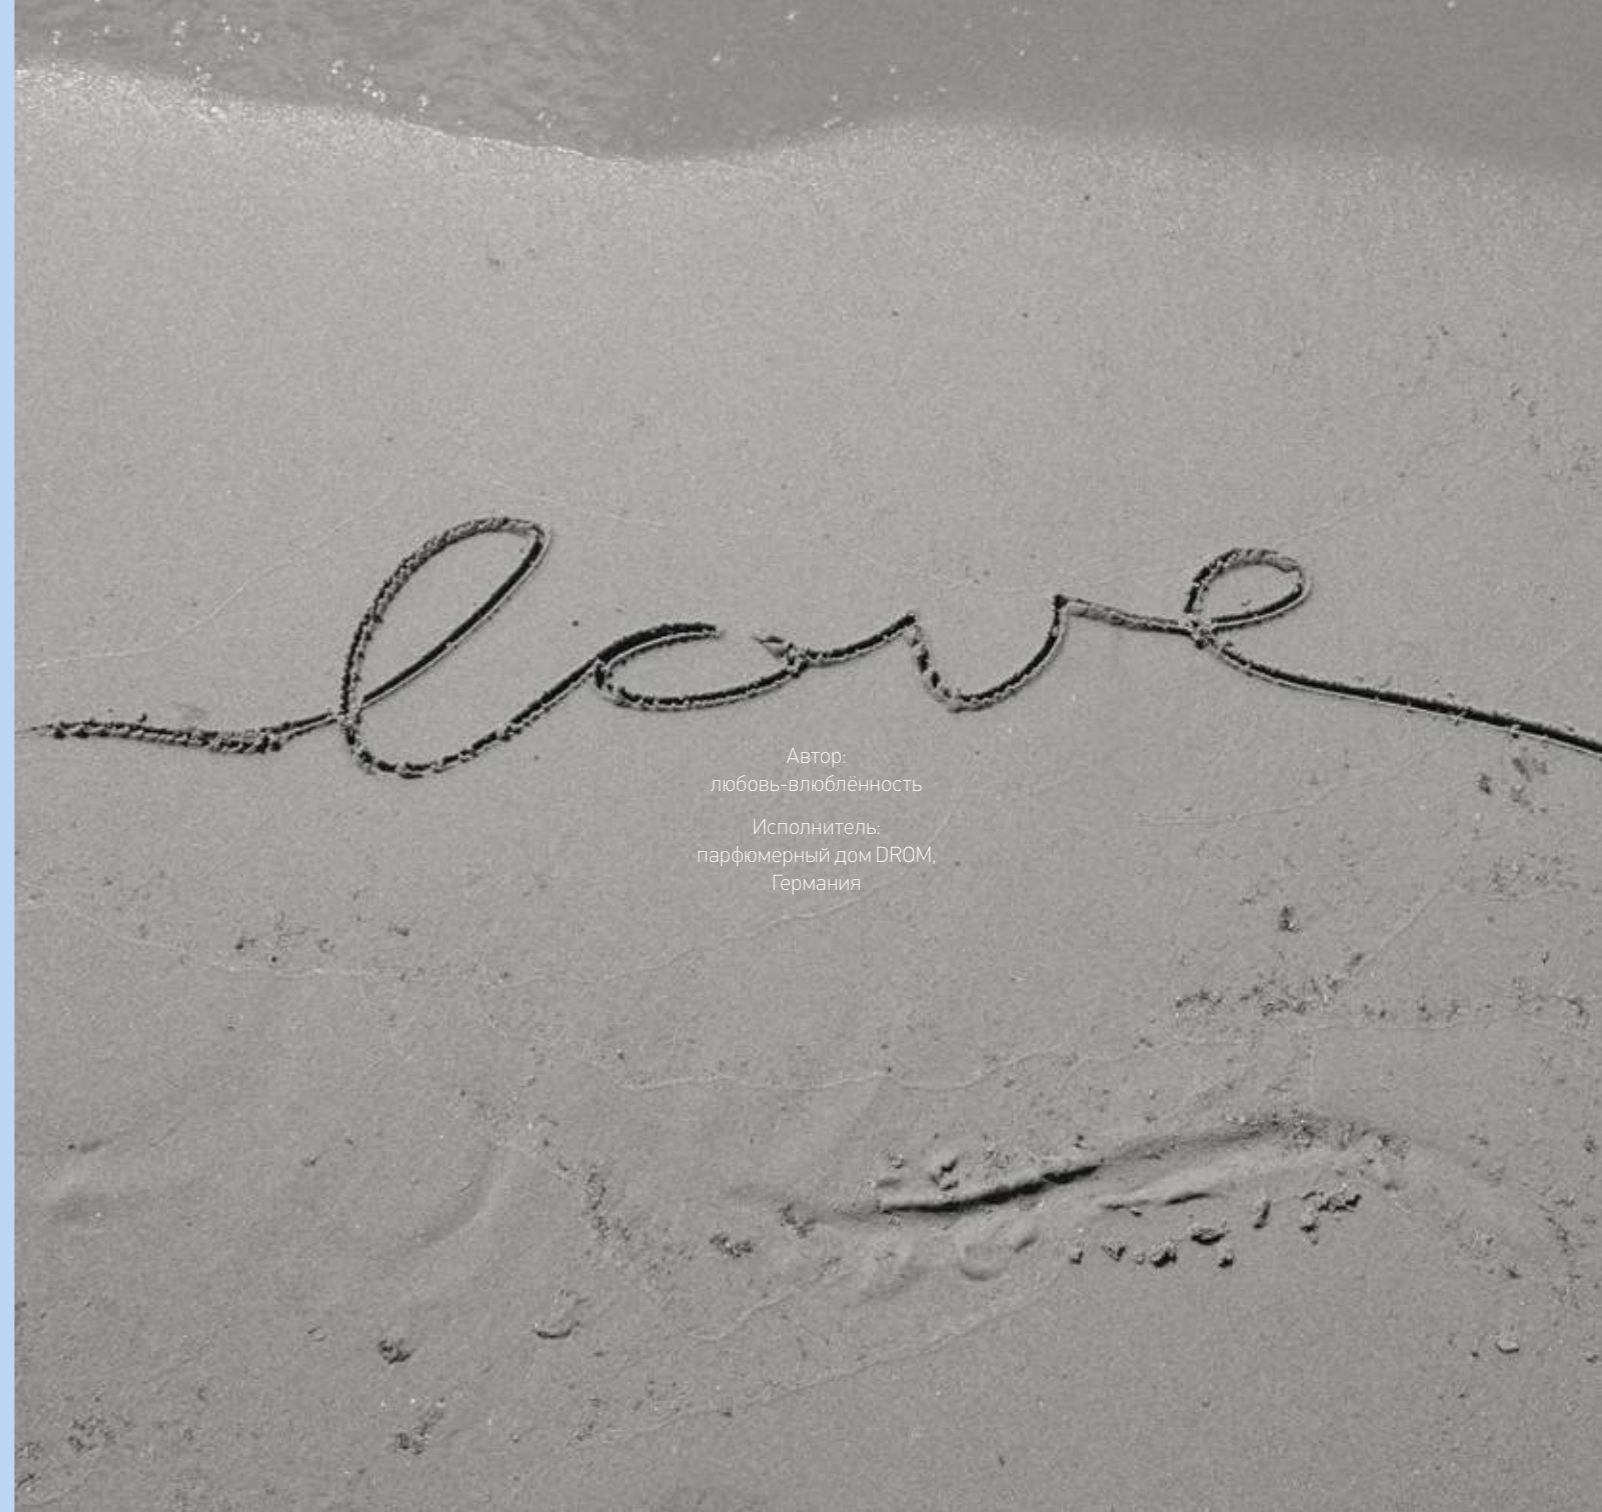 love
Автор:
любовь-влюблённость
Исполнитель:
парфюмерный дом DROM,
Германия